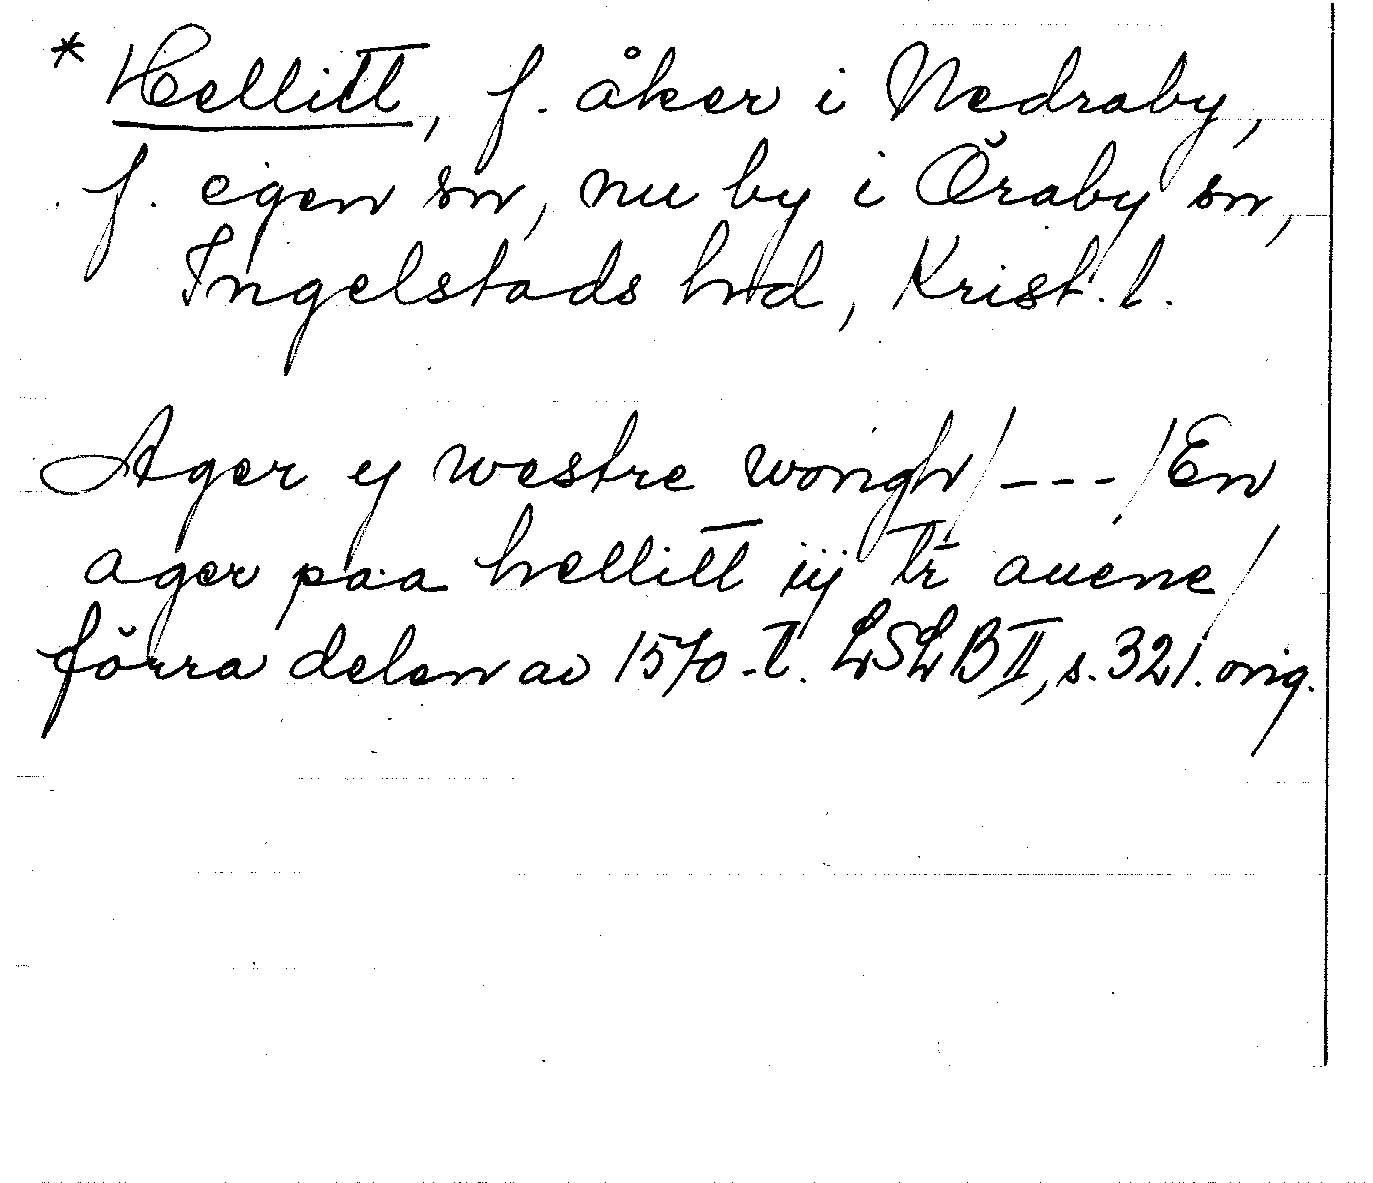 * Hellitt, f. åker i Nedraby,
f. egen sn, nu by i Öraby sn,
Ingelstads hrd, Krist. l.
Ager ej westre wongh/---/En
ager paa hellitt iij tr auene/
förra delen av 1570-t. LSLB II, s. 321. orig.